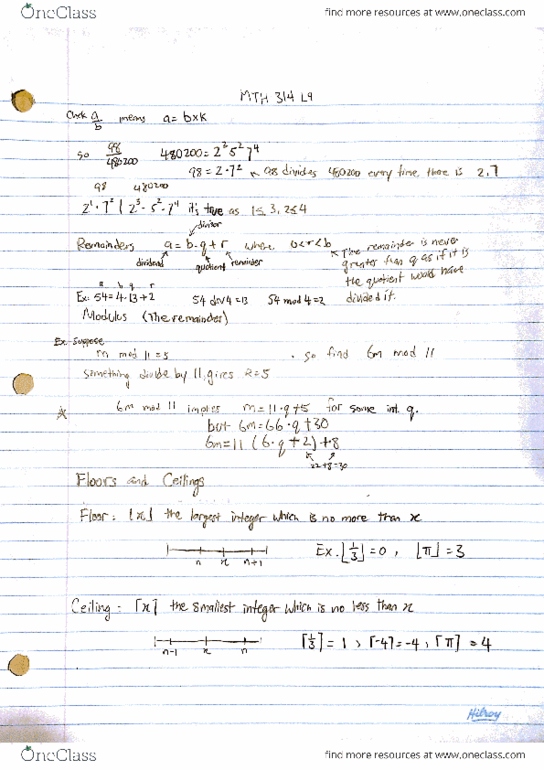 OneClass
find more resources at www.oneclass.com
MTH 314 L9
Check a/b means a = b×k
so 98/480200 480200 = 2² 5² 7⁴
98 = 2·7² 98 divides 480200 every time there is 2,7
98 480200
2¹·7² | 2³·5²·7⁴ it's true as 1≤3, 2≤4
divisor
Remainders a = b·q + r where 0<r<b
dividend quotient remainder
The remainder is never
greater than q as if it is
the quotient would have
divided it.
a b q r
Ex: 54=4·13+2 54 div 4=13 54 mod 4=2
Modulus (The remainder)
Ex. Suppose
m mod 11=5 so find 6m mod 11
Something divide by 11, gives R=5
6m mod 11 implies m=11·q+5 for some int q.
but 6m=66·q+30
6m=11(6·q+2)+8
22+8=30
Floors and Ceilings
Floor: ⌊x⌋ the largest integer which is no more than x
n x n+1
Ex. ⌊1/3⌋=0, ⌊π⌋=3
Ceiling: ⌈x⌉ the smallest integer which is no less than x
n-1 x n
⌈1/3⌉=1, ⌈-4⌉=-4, ⌈π⌉=4
Hilroy
OneClass
find more resources at www.oneclass.com